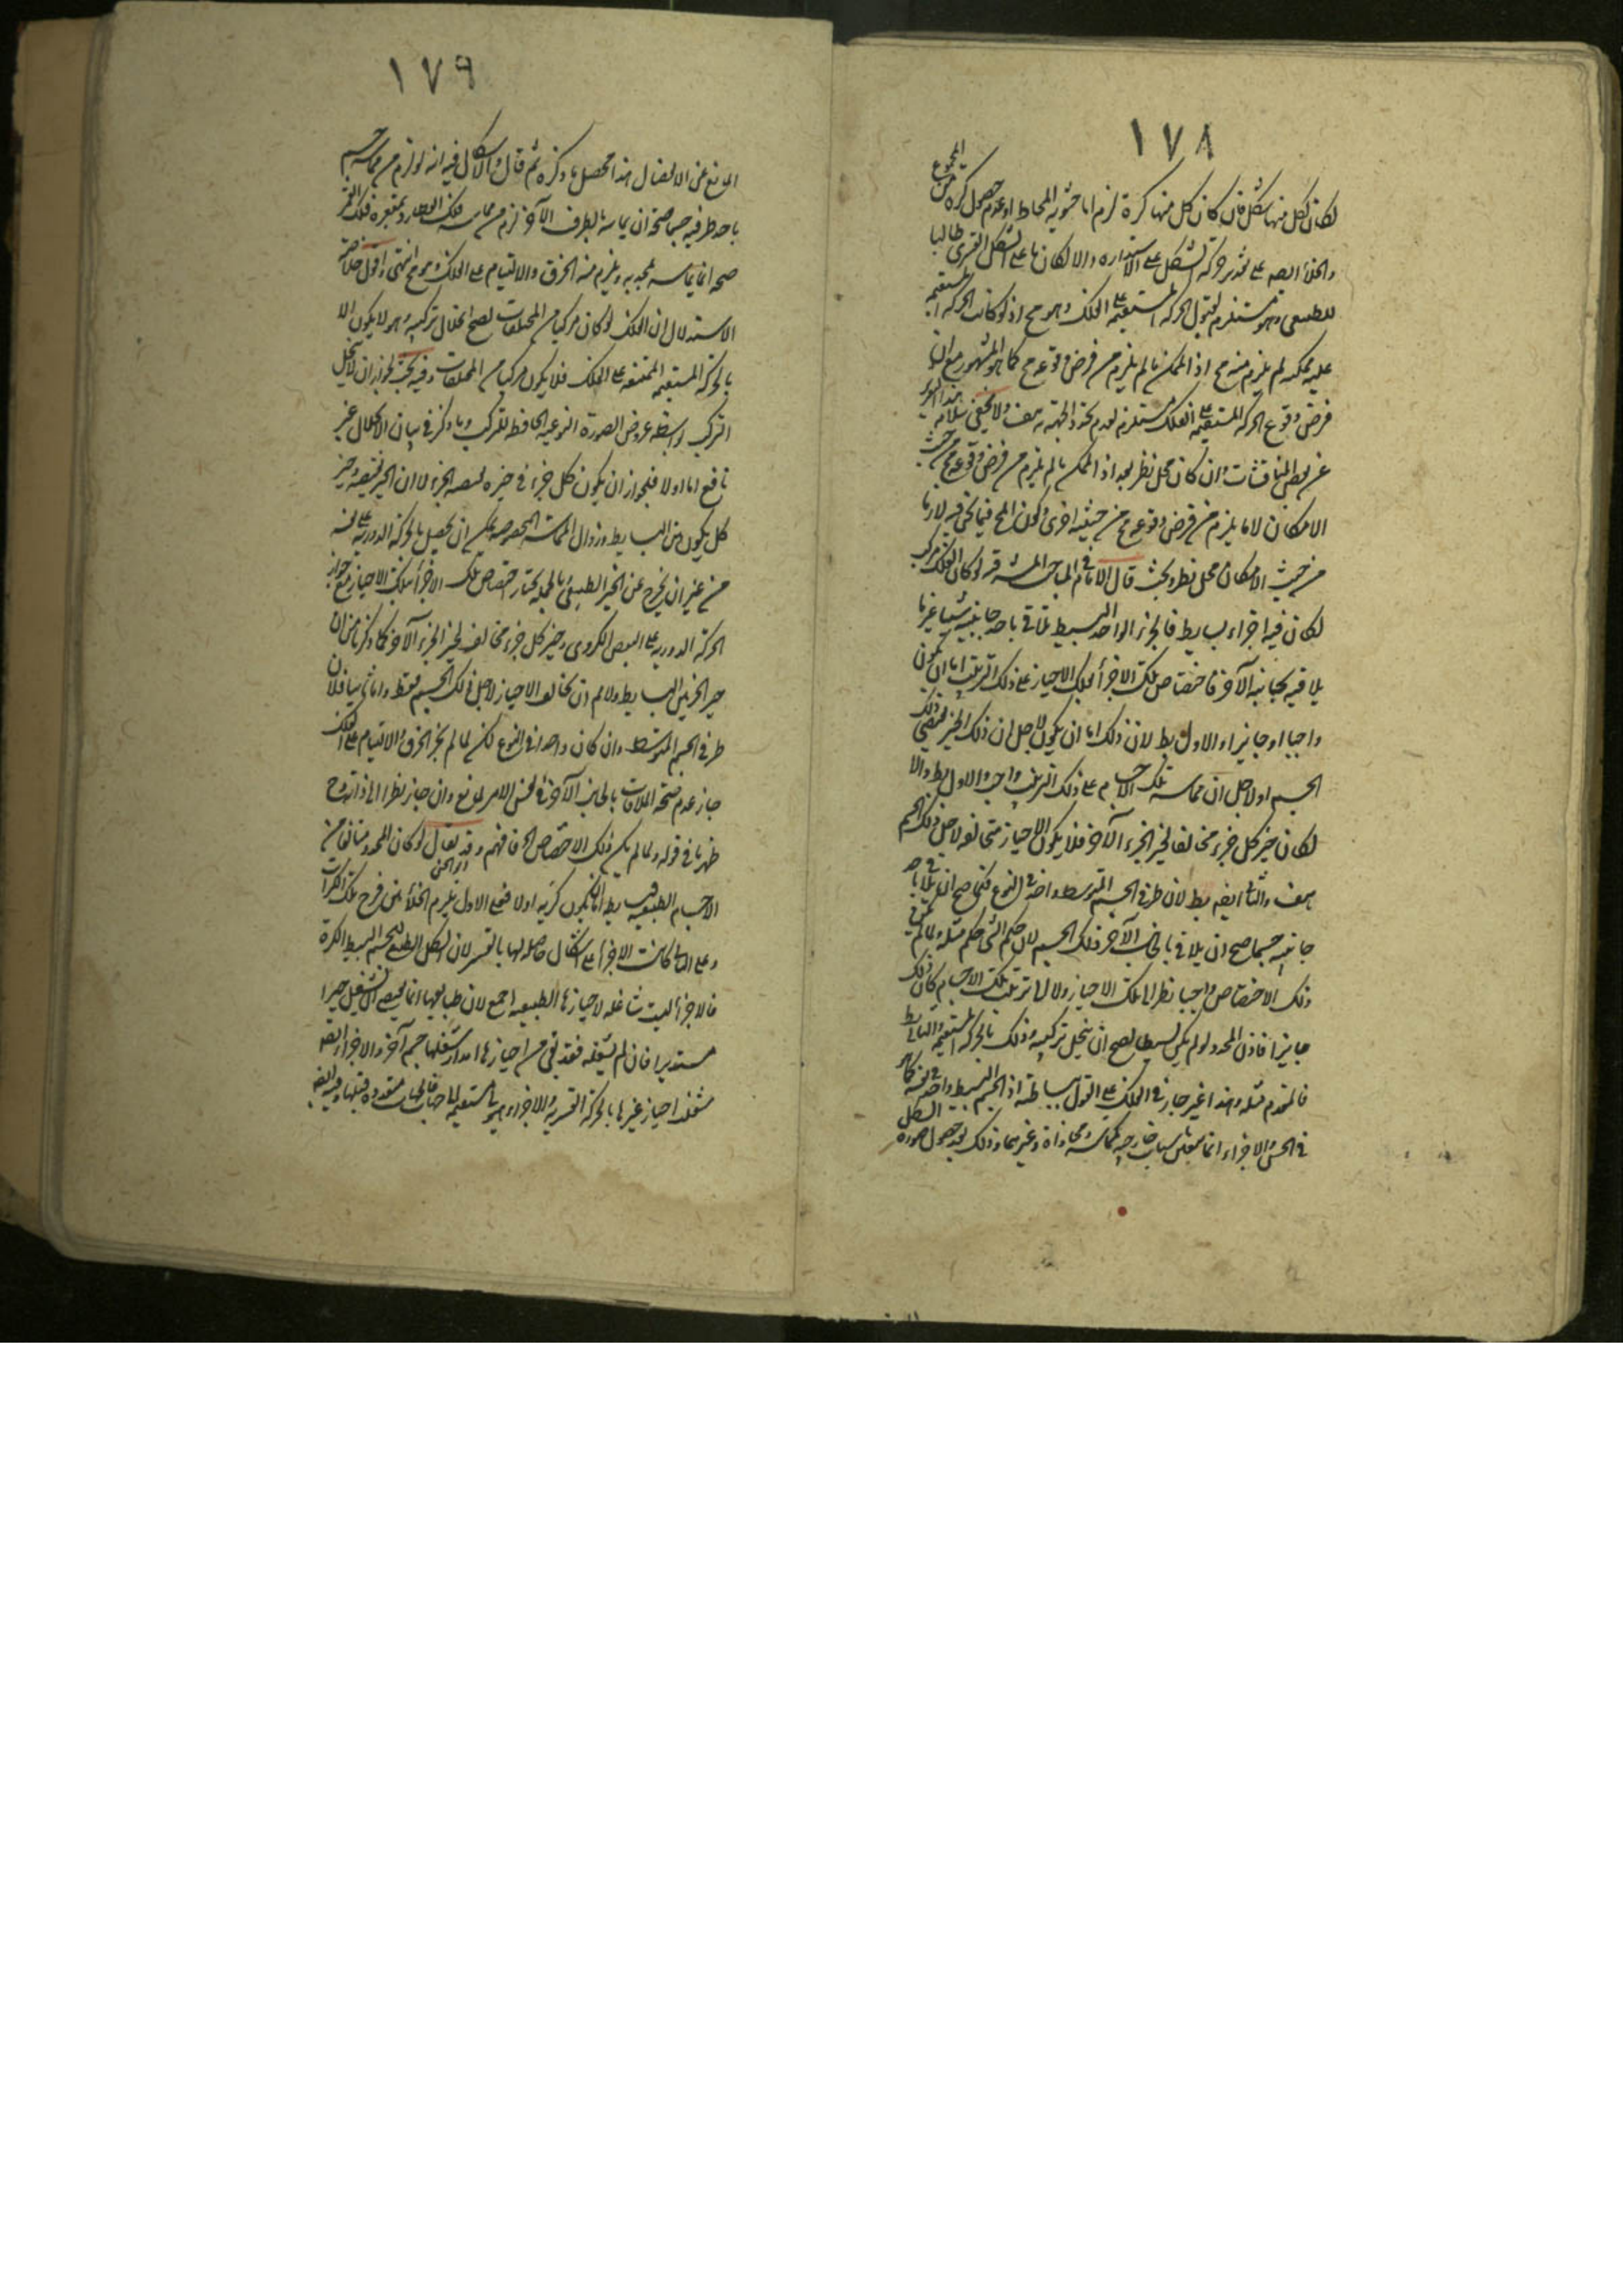 ١٧٨
لكان لكل منها شكل فان كان كل منها كرة لزم اما خشونة المحاط او عدم حصول كرة من المجموع
والخلأ ايضه على تقدير حركة الشكل على الاستداره والا لكان ما على الشكل القسرى طالبا
للطبيعى وهو مستلزم لقبول الحركة المستقيمة على الفلك وهو مح اذ لو كانت الحركة المستقيمة
عليه ممكنة لم يلزم منه مح اذ الممكن ما لم يلزم من فرض وقوعه مح كما هو المشهور مع ان
فرض وقوع الحركة المستقيمة على الفلك مستلزم لعدم تحدد الجهة به هف ولا يخفى سلامة هذا التقرير
عن بعض المناقشات وان كان محل نظر بعد اذ الممكن ما لم يلزم من فرض وقوعه مح من حيث
الامكان لا ما يلزم من فرض وقوعه مح من حيثية اخرى وكون المح فيما نحن فيه لازما
من حيث الامكان محل نظر وبحث قال الامام فى المباحث المشرقيه لو كان الفلك مركبا
لكان فيه اجزاء بسايط فالجزء الواحد البسيط تلاقى باحد جانبيه شيئا غير ما
يلاقيه بجانبه الآخر فاختصاص تلك الاجزأ بتلك الاحياز على ذلك الترتيب اما ان يكون
واجبا او جايزا والاول بط لان ذلك اما ان يكون لاجل ان ذلك الحيز يقتضى ذلك
الجسم او لاجل ان مماسة تلك الاجسام على ذلك الترتيب واجب والاول بط والا
لكان حيز كل جزء مخالفا لحيز الجزء الآخر فلا يكون الاحياز متخالفه لاجل ذلك الجسم
هف والثانى ايضه بط لان طرفى الجسم المتوسط واحد فى النوع فكما صح ان يلاقى باحد
جانبيه جسما صح ان يلاقى بالجانب الآخر ذلك الجسم لان حكم الشى حكم مثله ولما لم يكن
ذلك الاختصاص واجبا نظرا الى تلك الاحياز ولا الى ترتيب تلك الاجسام كان ذلك
جايزا فاذن المحدد لو لم يكن بسيطا لصح ان ينحل تركيبه وذلك بالحركة المستقيمة والتالى بط
فالمقدم مثله وهذا غير جار فى الفلك على القول ببساطته اذ الجسم البسيط واحد فى نفسه كما هو
فى الحس والاجزاء انما بعلت باسباب خارجيه كمماسة ومحاذاة وغيرهما وذلك بعد حصول صورة الشكل
١٧٩
المانع عن الانفصال هذا محصل ما ذكره ثم قال والاشكال فيه انه لو لزم من مماسة جسم
باحد طرفيه جسما صحة ان يماسه بالطرف الآخر لزم من مماسه فلك العطارد بمقعره فلك القمر
صحة انما يماسه بمحدبه ويلزم منه الخرق والالتيام على الفلك وهو مح انتهى واقول خلاصة
الاستدلال ان الفلك لو كان مركبا من المختلفات لصح انحلال تركيبه وهو لا يكون الا
بالحركة المستقيمه الممتنعه على الفلك فلا يكون مركبا من المختلفات وفيه بحث لجواز ان لا ينحل
التركيب بواسطة عروض الصورة النوعيه الحافظ للتركيب وما ذكر فى بيان الانحلال غير
نافع اما اولا فلجواز ان يكون كل جزء فى حيزه لنفسه الجزء لا ان الحيز يقتضيه وحيز
كل يكون من البسايط وزوال المماسة المخصوصه يمكن ان يحصل بالحركة الدورية على نفسه
من غير ان يخرج عن الحيز الطبيعى بالجمله يختار اختصاص تلك الاجزأ بتلك الاحياز مع جواز
الحركة الدورية على البعض الكروى وحيز كل جزء مخالف لحيز الجزء الآخر كما ذكرنا من ان
حيز الجزئين البسايط ولا لم ان تخالف الاحياز لاجل ذلك الجسم فقط واما ثانيا فلان
طرفى الجسم المتوسط وان كان واحدا فى النوع لكن لما لم يجز الخرق والالتيام على الفلك
جاز عدم صحة الملاقات بالجانب الآخر فى نفس الامر لمانع وان جاز نظرا الى ذاته وح
ظهر ما فى قوله ولما لم يكن ذلك الاختصاص الخ فافهم وقد يقال لو كان المحدد متالفا من
الاجسام الطبيعيه بسايط اما ان يكون كريه اولا فعلى الاول يلزم الخلأ بين فرج تلك الكرات
وعلى الثانى كانت الاجزأ على اشكال حاصله لها بالقسر لان الشكل الطبيعى للجسم البسيط الكرة
فالاجزأ ليست شاغله لاحيازها الطبيعيه اجمع لان طبايعها انما يقتضى ان تشغل حيزا
مستديرا فان لم يشغله فقد بقى من احيازها امدار شغلها جسم آخر والاجزاء ايضه
شغلت احياز غيرها بالحركة القسريه والاجزاء المستقيمه جهات متعدده قبلها وايضه